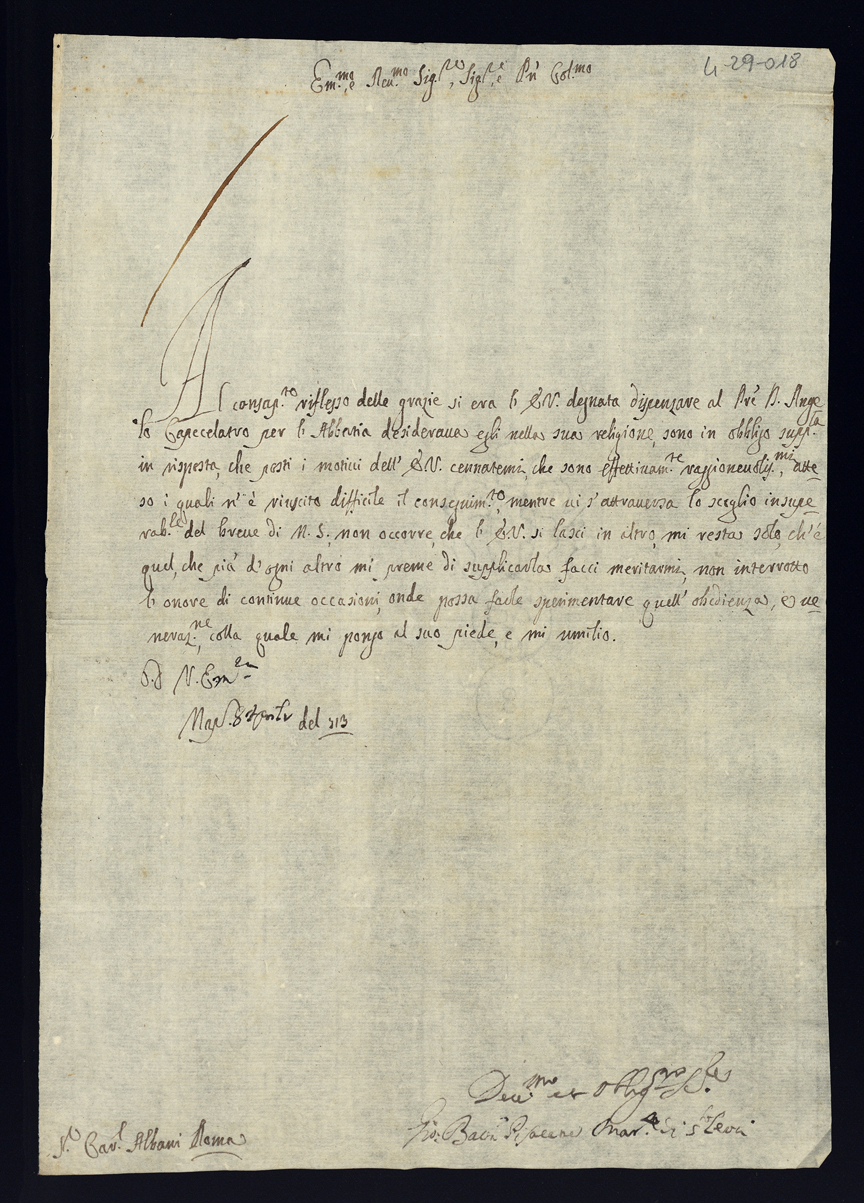 4-29-018
Em.mo, e Reu.mo Sig.re, Sig.re, e Prñ Col.mo
Al consap.to riflesso delle grazie si era l' E.V. degnata dispenzare al Prê D. Ange
lo Capecelatro per l' Abbatia desideraua egli nella sua religione, sono in obbligo supp.la
in risposta, che posti i motiui dell' E.V. cennatemi, che sono effettiuam.te raggioneuoliss.mi, atte
so i quali n' è riuscito difficile il conseguim.to, mentre ui s' attrauersa lo scoglio insupe
rab.le del breue di N. S., non occorre, che l' E.V. si lasci in altro, mi resta solo, ch' è
quel, che più d' ogni altro mi preme di supplicarla facci meritarmi, non interrotto
l' onore di continue occasioni, onde possa farle sperimentare quell' obedienza, e ue
neraz.ne, colla quale mi pongo al suo piede, e mi umilio.
D. V. Em.za
Nap. 8 del 713
Deu.mo et Obblig.mo
Gio: Batt.a Pisacane Mar.
S.r Car.l Albani Roma